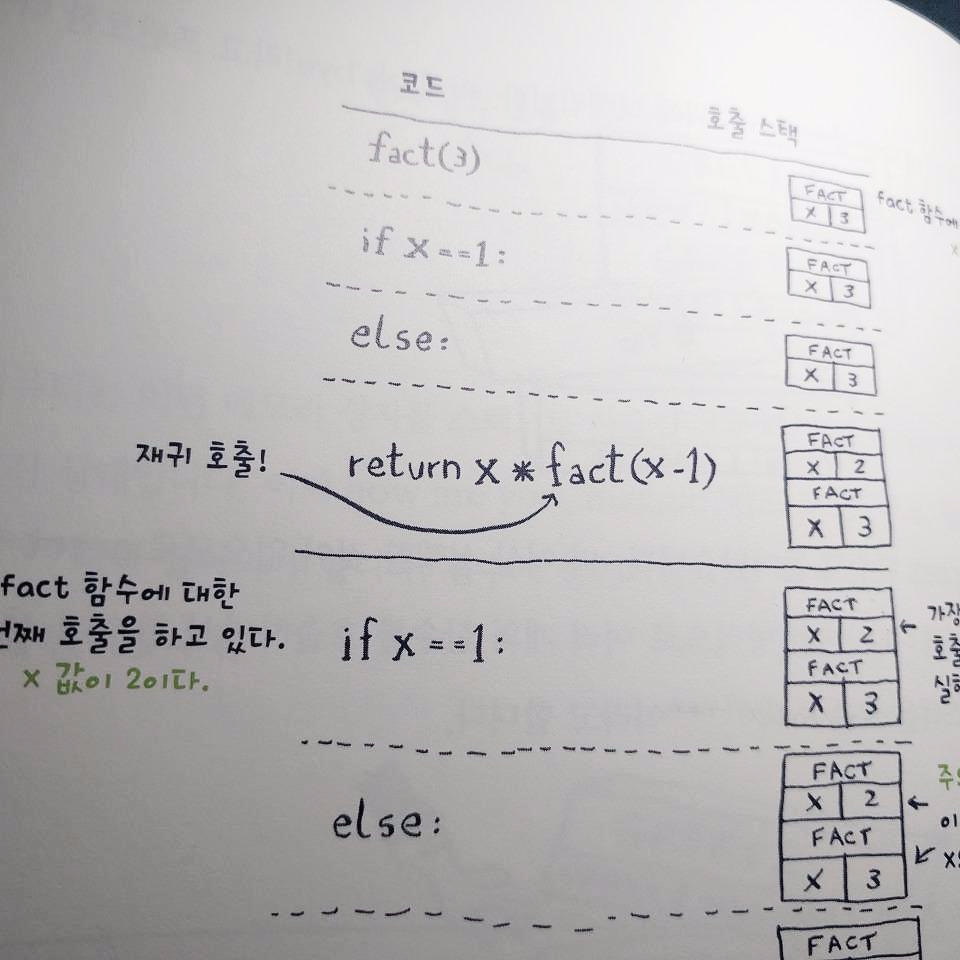 코드
호출 스택
fact(3)
FACT
X 3
fact 함수에
if x==1:
FACT
X 3
else:
FACT
X 3
재귀 호출!
return x * fact(x-1)
FACT
X 2
FACT
X 3
fact 함수에 대한
호출을 하고 있다.
x 값이 2이다.
if x==1:
FACT
X 2
FACT
X 3
else:
FACT
X 2
FACT
X 3
FACT